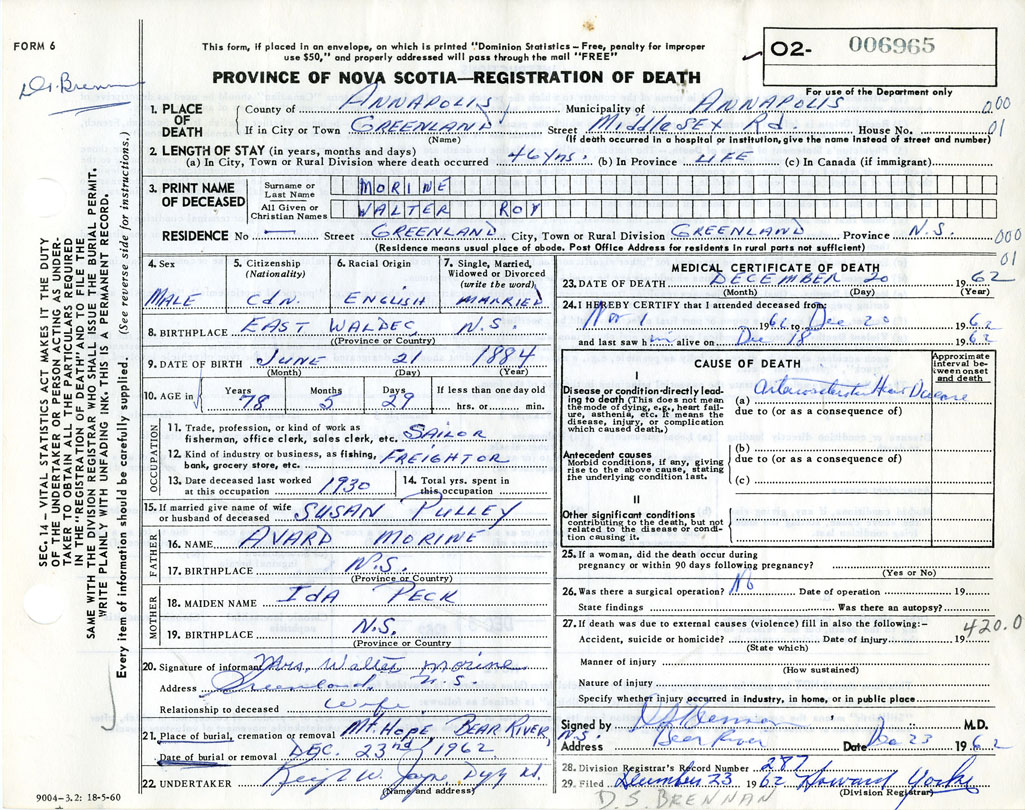 FORM 6
This form, if placed in an envelope, on which is printed "Dominion Statistics – Free, penalty for improper
use $50," and properly addressed will pass through the mail "FREE"
PROVINCE OF NOVA SCOTIA—REGISTRATION OF DEATH
O2- 006965
For use of the Department only
D.S. Brennan
SEC. 14 – VITAL STATISTICS ACT MAKES IT THE DUTY
OF THE UNDERTAKER OR PERSON ACTING AS UNDER-
TAKER TO OBTAIN ALL THE PARTICULARS REQUIRED
IN THE "REGISTRATION OF DEATH" AND TO FILE THE
SAME WITH THE DIVISION REGISTRAR WHO SHALL ISSUE THE BURIAL PERMIT.
WRITE PLAINLY WITH UNFADING INK. THIS IS A PERMANENT RECORD.
Every item of information should be carefully supplied. (See reverse side for instructions.)
1. PLACE OF DEATH County of ANNAPOLIS Municipality of ANNAPOLIS 000
If in City or Town GREENLAND Street MIDDLESEX Rd. House No. 01
(Name) (If death occurred in a hospital or institution, give the name instead of street and number)
2. LENGTH OF STAY (in years, months and days)
(a) In City, Town or Rural Division where death occurred 46 yrs. (b) In Province LIFE (c) In Canada (if immigrant)
3. PRINT NAME OF DECEASED
Surname or Last Name MORINE
All Given or Christian Names WALTER ROY
RESIDENCE No — Street GREENLAND City, Town or Rural Division GREENLAND Province N.S. 000
(Residence means usual place of abode. Post Office Address for residents in rural parts not sufficient) 01
4. Sex MALE
5. Citizenship (Nationality) Cdn.
6. Racial Origin ENGLISH
7. Single, Married, Widowed or Divorced (write the word) MARRIED
8. BIRTHPLACE EAST WALDEC N.S.
(Province or Country)
9. DATE OF BIRTH JUNE 21 1884
(Month) (Day) (Year)
10. AGE in Years 78 Months 5 Days 29 If less than one day old hrs. or min.
OCCUPATION
11. Trade, profession, or kind of work as
fisherman, office clerk, sales clerk, etc. SAILOR
12. Kind of industry or business, as fishing,
bank, grocery store, etc. FREIGHTOR
13. Date deceased last worked
at this occupation 1930
14. Total yrs. spent in
this occupation
15. If married give name of wife
or husband of deceased SUSAN PULLEY
FATHER
16. NAME AVARD MORINE
17. BIRTHPLACE N.S.
(Province or Country)
MOTHER
18. MAIDEN NAME IdA PECK
19. BIRTHPLACE N.S.
(Province or Country
20. Signature of informant Mrs. Walter Morine
Address Greenland, N.S.
Relationship to deceased Wife
21. Place of burial, cremation or removal Mt. HOPE BEAR RIVER, N.S.
Date of burial or removal DEC. 23nd 1962
22. UNDERTAKER W. Jayne
(Name and address)
9004-3.2: 18-5-60
MEDICAL CERTIFICATE OF DEATH
23. DATE OF DEATH DECEMBER 20 1962
(Month) (Day) (Year)
24. I HEREBY CERTIFY that I attended deceased from:
Nov 1 1962 to Dec 20 1962
and last saw him alive on Dec 18 1962
CAUSE OF DEATH
Approximate interval between onset and death
I
Disease or condition directly leading to death (This does not mean the mode of dying, e.g., heart failure, asthenia, etc. It means the disease, injury, or complication which caused death.)
(a) Arteriosclerotic Heart Disease
due to (or as a consequence of)
Antecedent causes
Morbid conditions, if any, giving rise to the above cause, stating the underlying condition last.
(b)
due to (or as a consequence of)
(c)
II
Other significant conditions
contributing to the death, but not related to the disease or condition causing it.
25. If a woman, did the death occur during
pregnancy or within 90 days following pregnancy?
(Yes or No)
26. Was there a surgical operation? No Date of operation 19
State findings Was there an autopsy?
27. If death was due to external causes (violence) fill in also the following:-
Accident, suicide or homicide? Date of injury 19 420.0
(State which)
Manner of injury
(How sustained)
Nature of injury
Specify whether injury occurred in industry, in home, or in public place
Signed by D.S. Brennan M.D.
Address Bear River Date Dec 23 1962
28. Division Registrar's Record Number 287
29. Filed December 23 1962 Howard Yorke
(Division Registrar)
D.S. BRENNAN